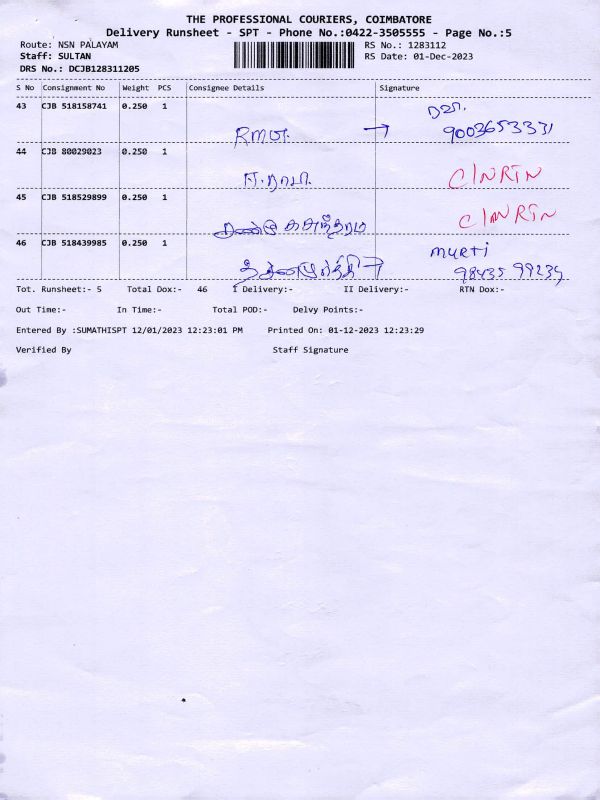 THE PROFESSIONAL COURIERS, COIMBATORE
Delivery Runsheet - SPT - Phone No.:0422-3505555 - Page No.:5
Route: NSN PALAYAM RS No.: 1283112
Staff: SULTAN RS Date: 01-Dec-2023
DRS No.: DCJB128311205
S No Consignment No Weight PCS Consignee Details Signature
43 CJB 518158741 0.250 1
→ 9003653331
44 CJB 80029023 0.250 1
C/NRTN
45 CJB 518529899 0.250 1
46 CJB 518439985 0.250 1 MURTI
98435 99234
Tot. Runsheet:- 5 Total Dox:- 46 I Delivery:- II Delivery:- RTN Dox:-
Out Time:- In Time:- Total POD:- Delvy Points:-
Entered By :SUMATHISPT 12/01/2023 12:23:01 PM Printed On: 01-12-2023 12:23:29
Verified By Staff Signature